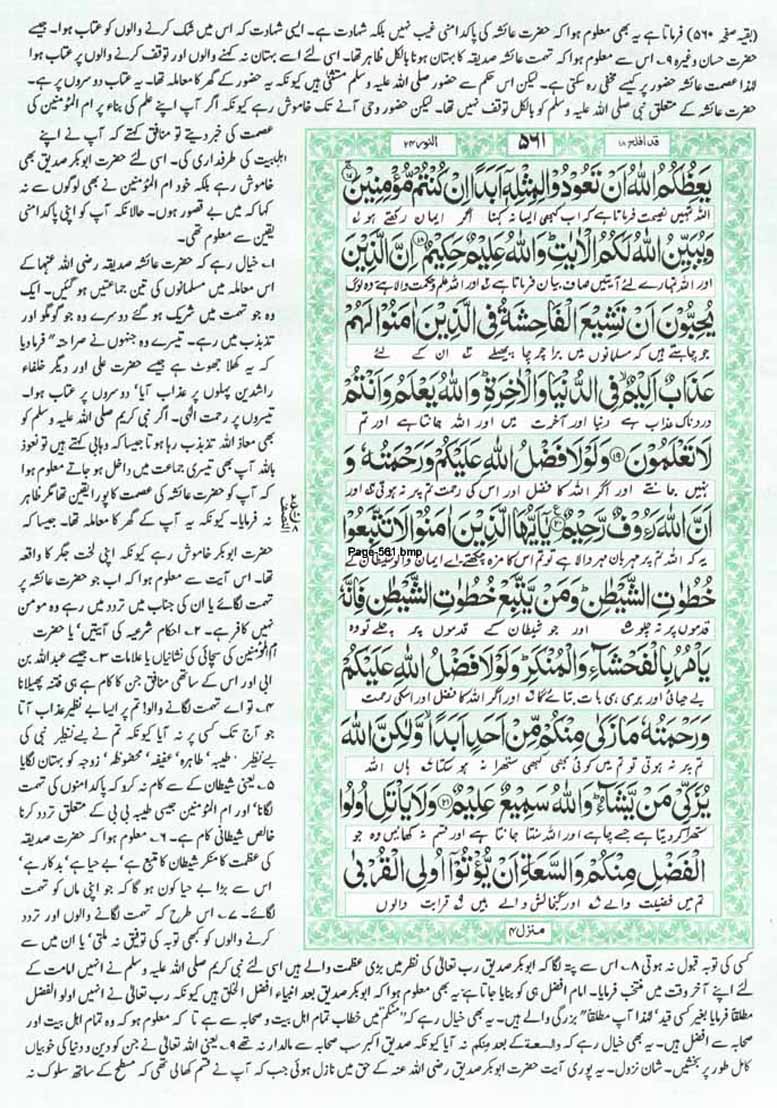 (بقیہ صفحہ ۵۶۰) فرماتا ہے یہ بھی معلوم ہوا کہ حضرت عائشہ کی پاکدامنی غیب نہیں بلکہ شہادت ہے۔ ایسی شہادت کہ اس میں شک کرنے والوں کو عتاب ہوا۔ جیسے
حضرت حسان وغیرہ ۹۔ اس سے معلوم ہوا کہ تہمت عائشہ صدیقہ کا بہتان ہونا بالکل ظاہر تھا۔ اسی لئے اسے بہتان نہ کہنے والوں اور توقف کرنے والوں پر عتاب ہوا
لہٰذا عصمت عائشہ حضور پر کیسے مخفی رہ سکتی ہے۔ لیکن اس حکم سے حضور صلی اللہ علیہ وسلم مستثنیٰ ہیں کیونکہ یہ حضور کے گھر کا معاملہ تھا۔ یہ عتاب دوسروں پر ہے۔
حضرت عائشہ کے متعلق نبی صلی اللہ علیہ وسلم کو بالکل توقف نہیں تھا۔ لیکن حضور وحی آنے تک خاموش رہے کیونکہ اگر آپ اپنے علم کی بناء پر ام المؤمنین کی
عصمت کی خبر دیتے تو منافق کہتے کہ آپ نے اپنے
اہلبیت کی طرفداری کی۔ اسی لئے حضرت ابوبکر صدیق بھی
خاموش رہے بلکہ خود ام المؤمنین نے بھی لوگوں سے نہ
کہا کہ میں بے قصور ہوں۔ حالانکہ آپ کو اپنی پاکدامنی
یقین سے معلوم تھی۔
۱۔ خیال رہے کہ حضرت عائشہ صدیقہ رضی اللہ عنہا کے
اس معاملہ میں مسلمانوں کی تین جماعتیں ہو گئیں۔ ایک
وہ جو تہمت میں شریک ہو گئے دوسرے وہ جو گومگو اور
تذبذب میں رہے۔ تیسرے وہ جنہوں نے صراحتہ" فرما دیا
کہ یہ کھلا جھوٹ ہے جیسے حضرت علی اور دیگر خلفاء
راشدین پہلوں پر عذاب آیا' دوسروں پر عتاب ہوا۔
تیسروں پر رحمت الٰہی۔ اگر نبی کریم صلی اللہ علیہ وسلم کو
بھی معاذ اللہ تذبذب رہا ہوتا جیسا کہ وہابی کہتے ہیں تو نعوذ
باللہ آپ بھی تیسری جماعت میں داخل ہو جاتے معلوم ہوا
کہ آپ کو حضرت عائشہ کی عصمت کا پورا یقین تھا مگر ظاہر
نہ فرمایا۔ کیونکہ یہ آپ کے گھر کا معاملہ تھا۔ جیسا کہ
حضرت ابوبکر خاموش رہے کیونکہ اپنی لخت جگر کا واقعہ
تھا۔ اس آیت سے معلوم ہوا کہ اب جو حضرت عائشہ پر
تہمت لگائے یا ان کی جناب میں تردد میں رہے وہ مومن
نہیں کافر ہے۔ ۲۔ احکام شرعیہ کی آیتیں' یا حضرت
ام المؤمنین کی سچائی کی نشانیاں یا علامات ۳۔ جیسے عبداللہ بن
ابی اور اس کے ساتھی منافق جن کا کام ہے ہی فتنہ پھیلانا
۴۔ تو اے تہمت لگانے والو! تم پر ایسا بے نظیر عذاب آتا
جو آج تک کسی پر نہ آیا کیونکہ تم نے بے نظیر نبی کی
بے نظیر' طیبہ' طاہرہ' عفیفہ' محفوظہ' زوجہ کو بہتان لگایا
۵۔ یعنی شیطان کے سے کام نہ کرو کہ پاکدامنوں کی تہمت
لگانا' اور ام المؤمنین جیسی طیبہ بی بی کے متعلق تردد کرنا
خالص شیطانی کام ہے۔ ۶۔ معلوم ہوا کہ حضرت صدیقہ
کی عظمت کا منکر شیطان کا متبع ہے' بے حیا ہے' بدکار ہے'
اس سے بڑا بے حیا کون ہو گا کہ جو اپنی ماں کو تہمت
لگائے۔ ۷۔ اس طرح کہ تہمت لگانے والوں اور تردد
کرنے والوں کو کبھی توبہ کی توفیق نہ ملتی' یا ان میں سے
قد افلح ۱۸
۵۶۱
النور ۲۴
يَعِظُكُمُ اللّٰهُ اَنْ تَعُوْدُوْا لِمِثْلِهٖۤ اَبَدًا اِنْ كُنْتُمْ مُّؤْمِنِيْنَ ۱۷
اللہ تمہیں نصیحت فرماتا ہے کہ اب کبھی ایسا نہ کہنا اگر ایمان رکھتے ہو
وَيُبَيِّنُ اللّٰهُ لَكُمُ الْاٰيٰتِ وَاللّٰهُ عَلِيْمٌ حَكِيْمٌ ۱۸ اِنَّ الَّذِيْنَ
اور اللہ تمہارے لئے آیتیں صاف بیان فرماتا ہے اور اللہ علم و حکمت والا ہے وہ لوگ
يُحِبُّوْنَ اَنْ تَشِيْعَ الْفَاحِشَةُ فِى الَّذِيْنَ اٰمَنُوْا لَهُمْ
جو چاہتے ہیں کہ مسلمانوں میں برا چرچا پھیلے ان کے لئے
عَذَابٌ اَلِيْمٌ فِى الدُّنْيَا وَالْاٰخِرَةِ وَاللّٰهُ يَعْلَمُ وَاَنْتُمْ
دردناک عذاب ہے دنیا اور آخرت میں اور اللہ جانتا ہے اور تم
لَا تَعْلَمُوْنَ ۱۹ وَلَوْلَا فَضْلُ اللّٰهِ عَلَيْكُمْ وَرَحْمَتُهٗ وَ
نہیں جانتے اور اگر اللہ کا فضل اور اس کی رحمت تم پر نہ ہوتی اور
اَنَّ اللّٰهَ رَءُوْفٌ رَّحِيْمٌ ۲۰ يٰۤاَيُّهَا الَّذِيْنَ اٰمَنُوْا لَا تَتَّبِعُوْا
Page-561.bmp
یہ کہ اللہ تم پر مہربان مہر والا ہے تو تم اس کا مزہ چکھتے اے ایمان والو شیطان کے
خُطُوٰتِ الشَّيْطٰنِ وَمَنْ يَّتَّبِعْ خُطُوٰتِ الشَّيْطٰنِ فَاِنَّهٗ
قدموں پر نہ چلو اور جو شیطان کے قدموں پر چلے تو وہ
يَاْمُرُ بِالْفَحْشَآءِ وَالْمُنْكَرِ وَلَوْلَا فَضْلُ اللّٰهِ عَلَيْكُمْ
بے حیائی اور بری ہی بات بتائے گا اور اگر اللہ کا فضل اور اسکی رحمت
وَرَحْمَتُهٗ مَا زَكٰى مِنْكُمْ مِّنْ اَحَدٍ اَبَدًا وَّلٰكِنَّ اللّٰهَ
تم پر نہ ہوتی تو تم میں کوئی بھی کبھی ستھرا نہ ہو سکتا ہاں اللہ
يُزَكِّىْ مَنْ يَّشَآءُ وَاللّٰهُ سَمِيْعٌ عَلِيْمٌ ۲۱ وَلَا يَاْتَلِ اُولُوا
ستھرا کر دیتا ہے جسے چاہے اور اللہ سنتا جانتا ہے اور قسم نہ کھائیں وہ جو
الْفَضْلِ مِنْكُمْ وَالسَّعَةِ اَنْ يُّؤْتُوْۤا اُولِى الْقُرْبٰى
تم میں فضیلت والے اور گنجائش والے ہیں قرابت والوں
منزل ۴
کسی کی توبہ قبول نہ ہوتی ۸۔ اس سے پتہ لگا کہ ابوبکر صدیق رب تعالیٰ کی نظر میں بڑی عظمت والے ہیں اسی لئے نبی کریم صلی اللہ علیہ وسلم نے انہیں امامت کے
لئے اپنے آخر وقت میں منتخب فرمایا۔ امام افضل ہی کو بنایا جاتا ہے۔ یہ بھی معلوم ہوا کہ ابوبکر صدیق بعد انبیاء افضل الخلق ہیں کیونکہ رب تعالیٰ نے انہیں اولوا الفضل
مطلقا فرمایا بغیر کسی قید' لہٰذا آپ مطلقا" بزرگی والے ہیں۔ یہ بھی خیال رہے کہ "منکم" میں خطاب تمام اہل بیت و صحابہ سے ہے تا کہ معلوم ہو کہ وہ تمام اہل بیت اور
صحابہ سے افضل ہیں۔ یہ بھی خیال رہے کہ والسعۃ کے بعد منکم نہ آیا کیونکہ صدیق اکبر سب صحابہ سے مالدار نہ تھے ۹۔ یعنی اللہ تعالیٰ نے جن کو دین و دنیا کی خوبیاں
کامل طور پر بخشیں۔ شان نزول۔ یہ پوری آیت حضرت ابوبکر صدیق رضی اللہ عنہ کے حق میں نازل ہوئی جب کہ آپ نے قسم کھالی تھی کہ مسطح کے ساتھ سلوک نہ